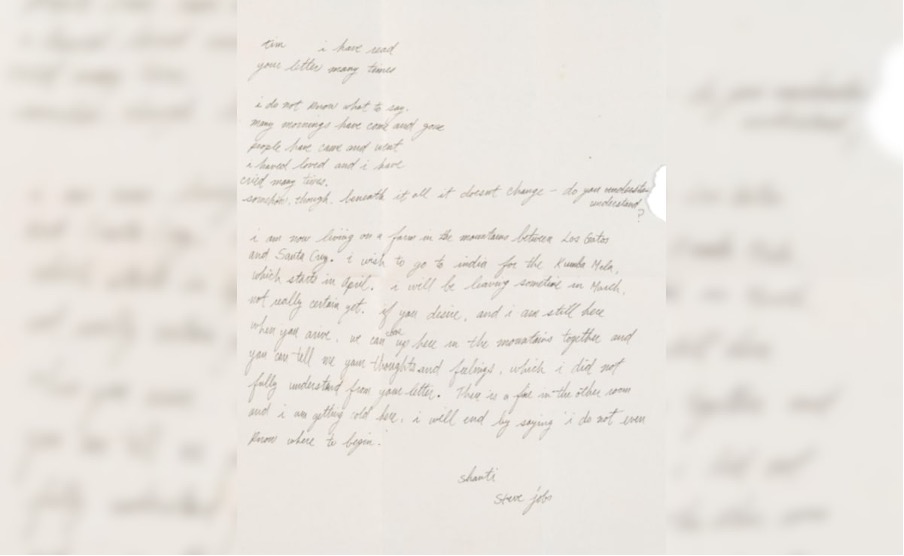 tim i have read
your letter many times
i do not know what to say.
many mornings have come and gone
people have came and went
i haved loved and i have
cried many times.
somehow, though, beneath it all it doesnt change – do you
understand
?
i am now living on a farm in the mountains between Los Gatos
and Santa Cruz. i wish to go to india for the Kumba Mela,
which starts in april. i will be leaving sometime in March,
not really certain yet. if you desire, and i am still here
when you arive, we can up here in the mountains together and
you can tell me your thoughts and feelings, which i did not
fully understand from your letter. There is a fire in the other room
and i am getting cold here. i will end by saying "i do not even
know where to begin."
shanti
steve jobs